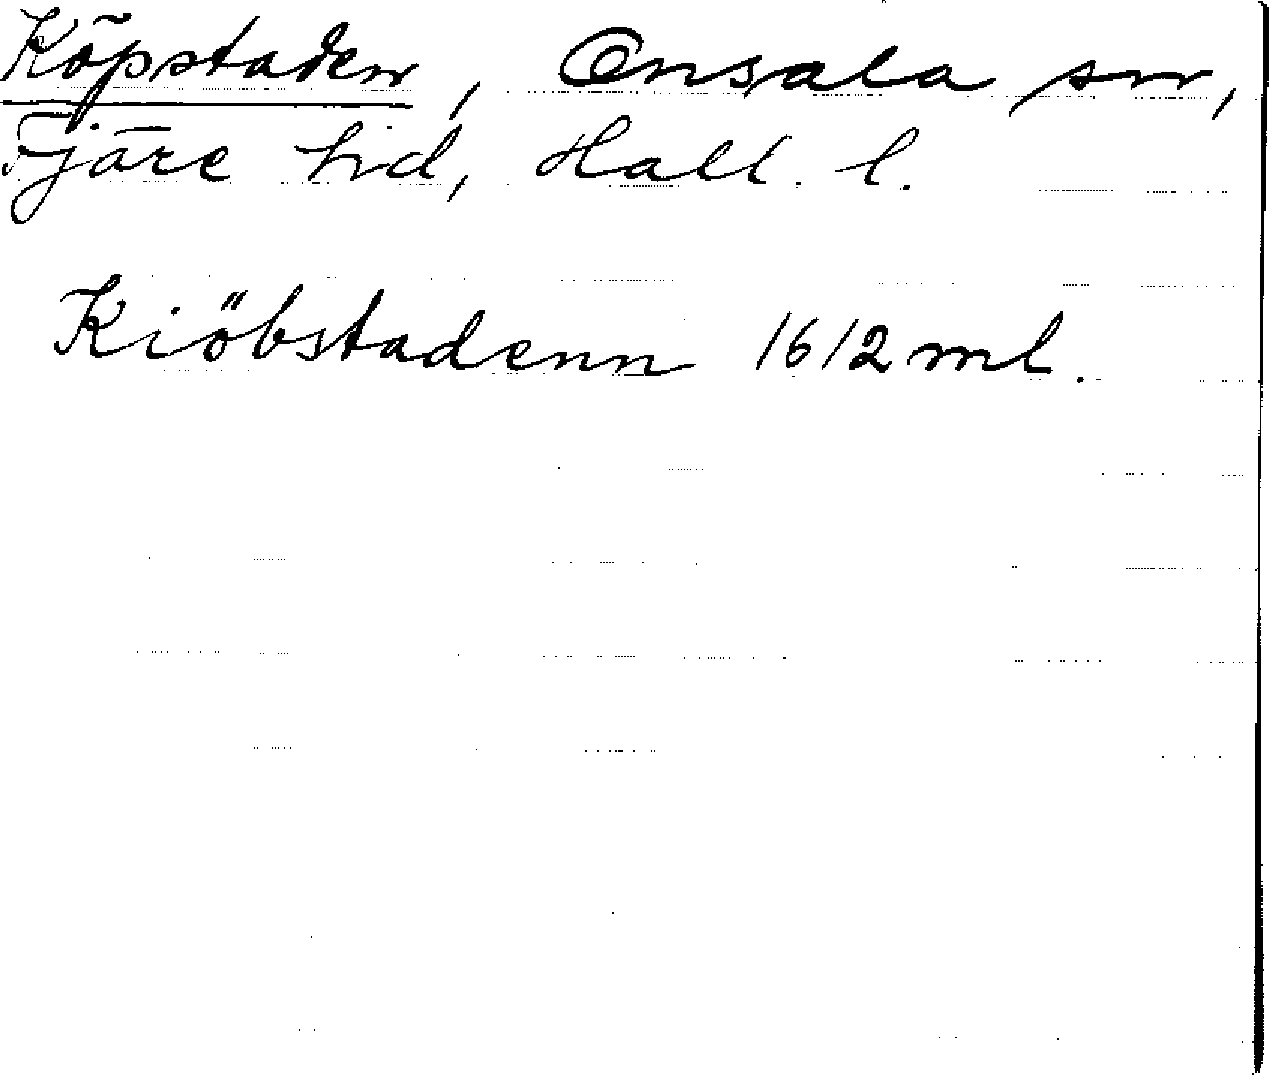 Köpstaden, Onsala sn,
Fjäre hd, Hall. l.
Kiöbstadenn 1612 ml.